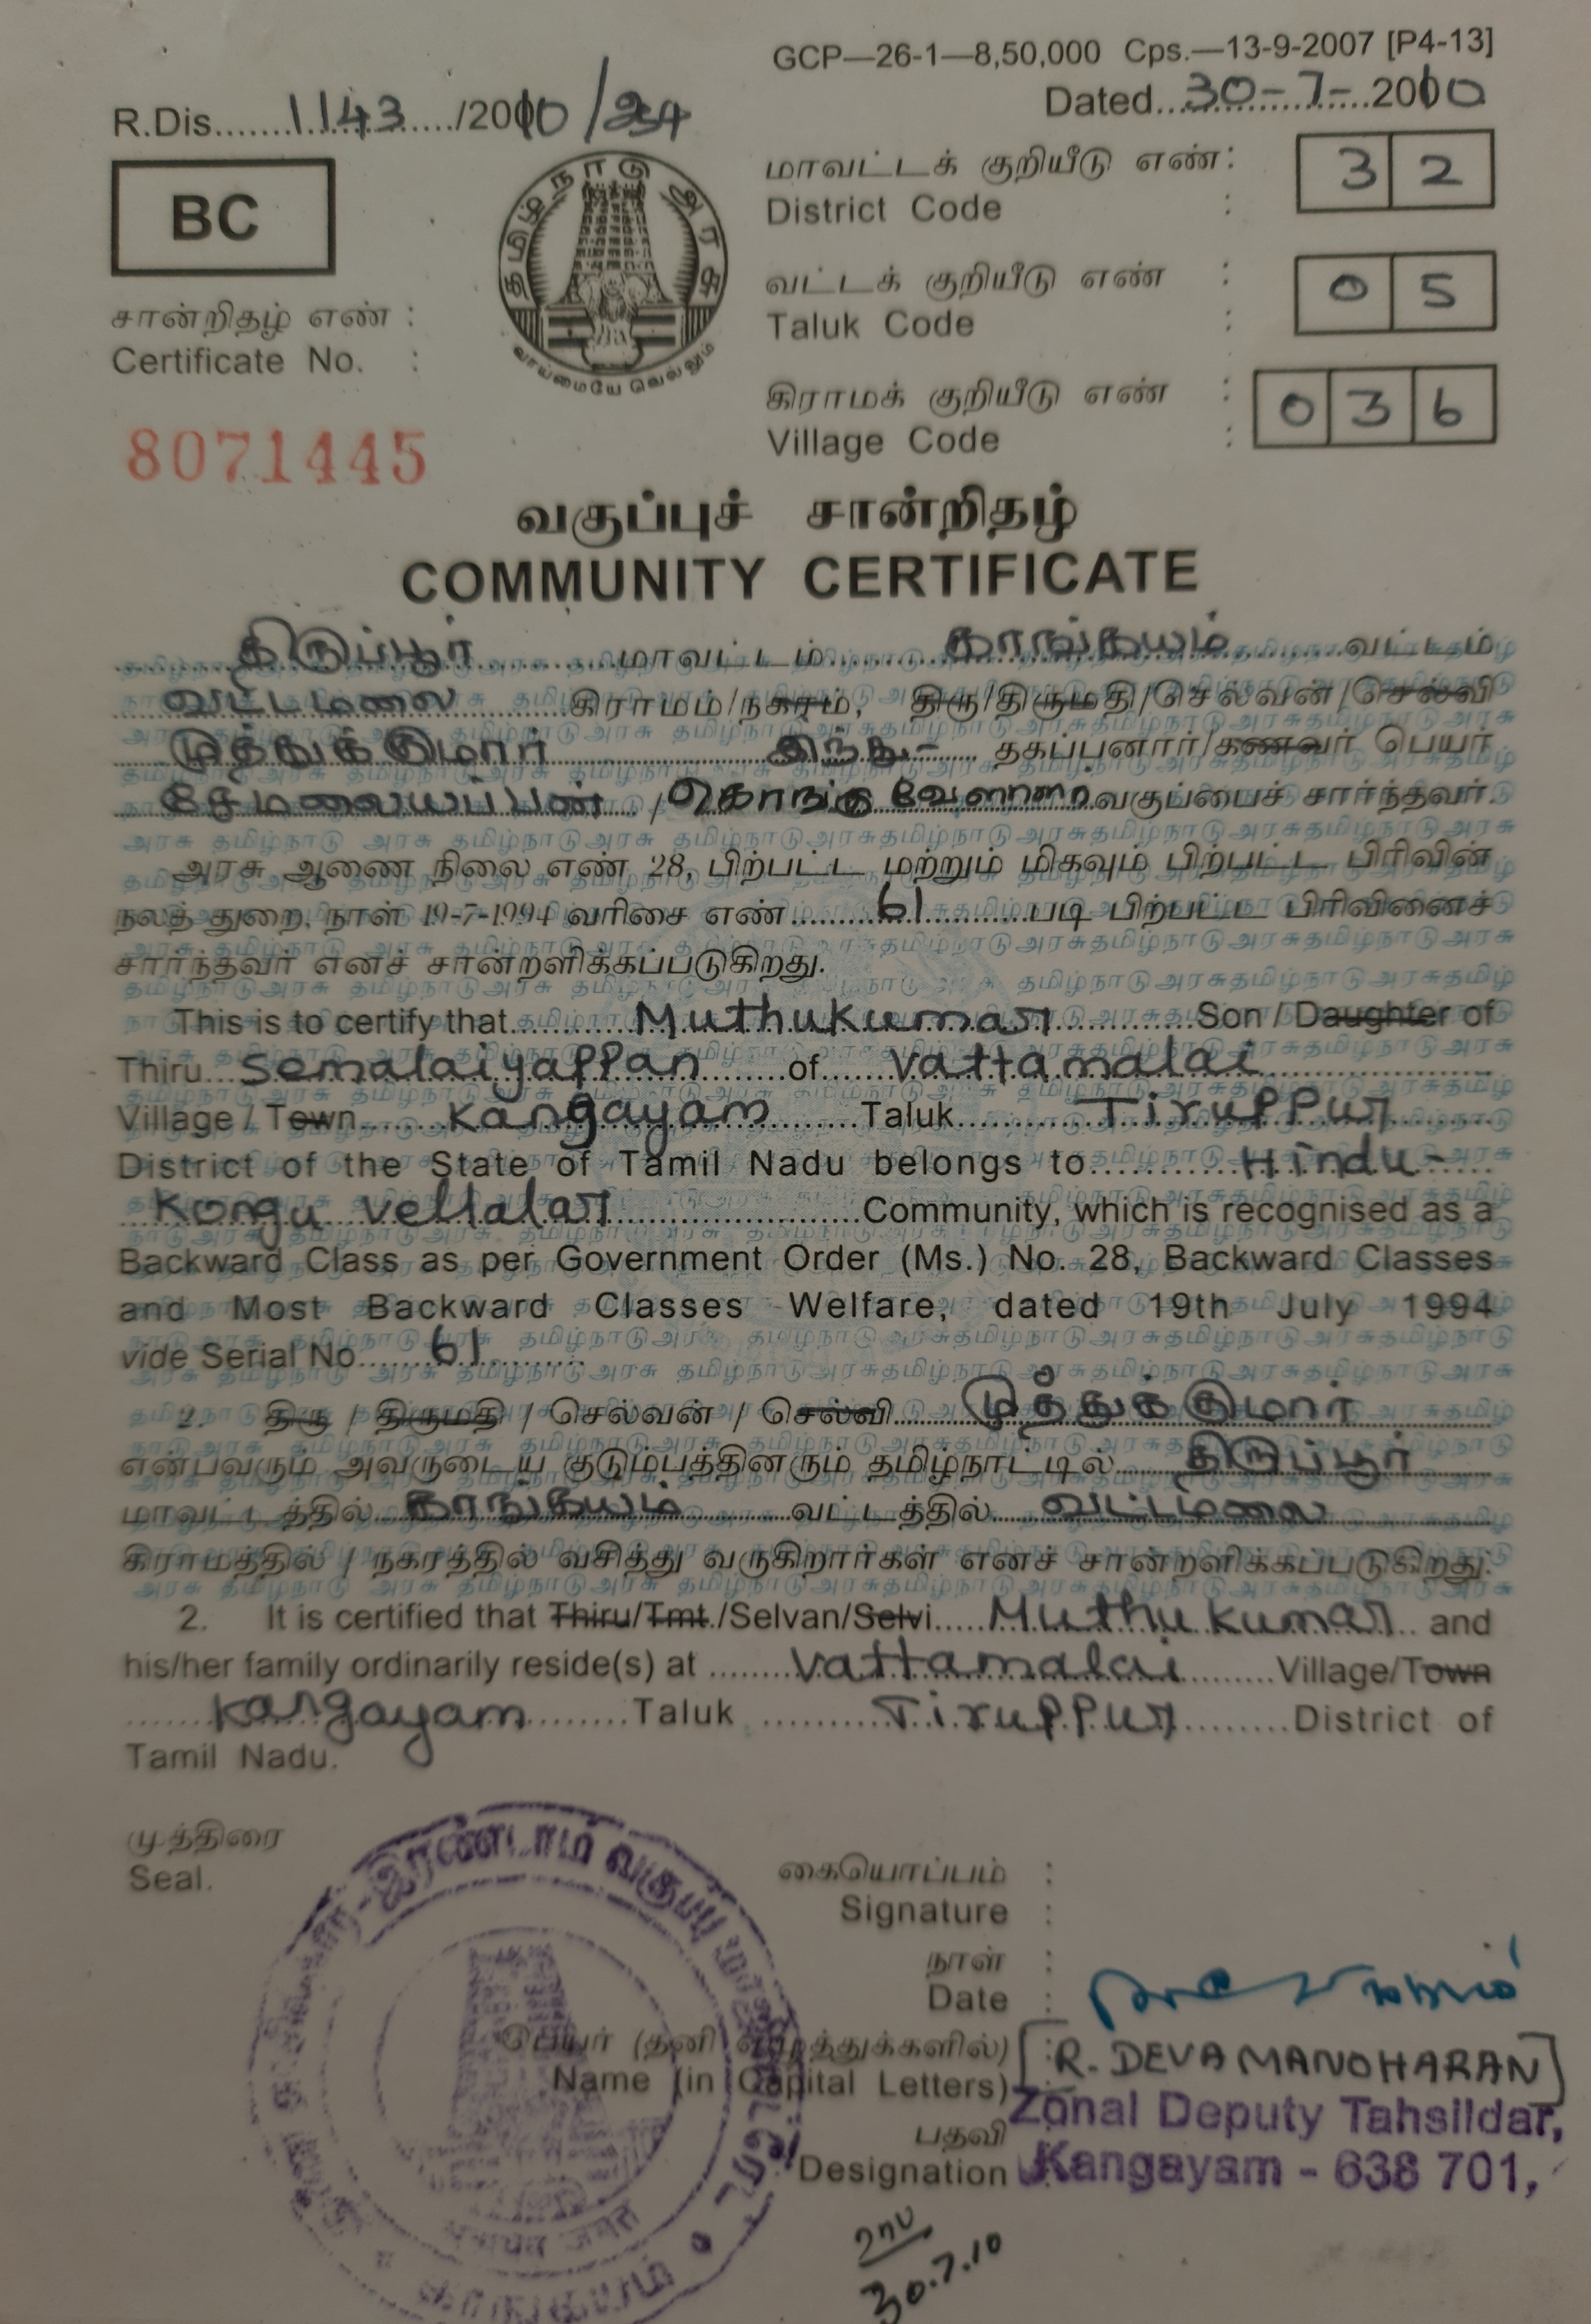 GCP—26-1—8,50,000 Cps.—13-9-2007 [P4-13]
R.Dis.......1143....../2010/234
Dated...30-7-...2010
BC
தமிழ்நாடு அரசு
வாய்மையே வெல்லும்
மாவட்டக் குறியீடு எண் : 3 2
District Code :
வட்டக் குறியீடு எண் : 0 5
Taluk Code :
கிராமக் குறியீடு எண் : 0 3 6
Village Code :
சான்றிதழ் எண் :
Certificate No. :
8071445
வகுப்புச் சான்றிதழ்
COMMUNITY CERTIFICATE
திருப்பூர் மாவட்டம் காங்கயம் வட்டம்
வட்டமலை கிராமம்/நகரம், திரு/திருமதி/செல்வன்/செல்வி
முத்துக்குமார் இந்து- தகப்பனார்/கணவர் பெயர்
சேமலையப்பன் / கொங்கு வேளாளர் வகுப்பைச் சார்ந்தவர்.
அரசு ஆணை நிலை எண் 28, பிற்பட்ட மற்றும் மிகவும் பிற்பட்ட பிரிவின்
நலத் துறை, நாள் 19-7-1994 வரிசை எண் 61 படி பிற்பட்ட பிரிவினைச்
சார்ந்தவர் எனச் சான்றளிக்கப்படுகிறது.
This is to certify that Muthukumar Son / Daughter of
Thiru Semalaiyappan of Vattamalai
Village / Town Kangayam Taluk Tiruppur
District of the State of Tamil Nadu belongs to Hindu-
Kongu Vellalar Community, which is recognised as a
Backward Class as per Government Order (Ms.) No. 28, Backward Classes
and Most Backward Classes Welfare, dated 19th July 1994
vide Serial No. 61
2. திரு / திருமதி / செல்வன் / செல்வி முத்துக்குமார்
என்பவரும் அவருடைய குடும்பத்தினரும் தமிழ்நாட்டில் திருப்பூர்
மாவட்டத்தில் காங்கயம் வட்டத்தில் வட்டமலை
கிராமத்தில் / நகரத்தில் வசித்து வருகிறார்கள் எனச் சான்றளிக்கப்படுகிறது.
2. It is certified that Thiru/Tmt./Selvan/Selvi Muthukumar and
his/her family ordinarily reside(s) at Vattamalai Village/Town
Kangayam Taluk Tiruppur District of
Tamil Nadu.
முத்திரை
Seal.
கையொப்பம் :
Signature :
நாள் :
Date :
பெயர் (தனி எழுத்துக்களில்) :
Name (in Capital Letters) [R. DEVAMANOHARAN]
பதவி
Designation
Zonal Deputy Tahsildar,
Kangayam - 638 701,
இரண்டாம் வகுப்பு
காங்கயம்
30.7.10